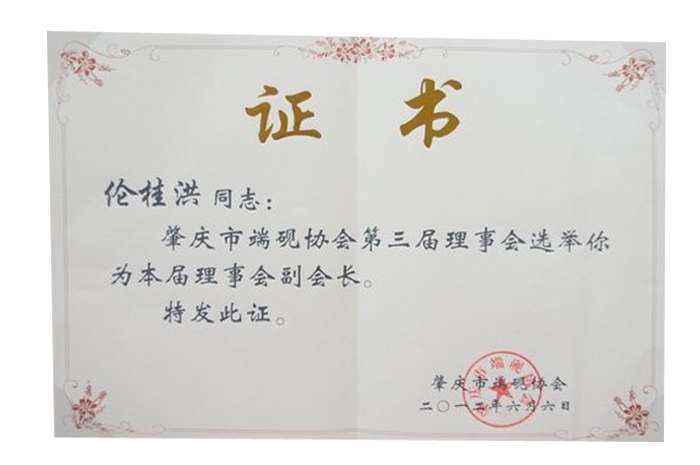 证 书
伦桂洪同志：
肇庆市端砚协会第三届理事会选举你
为本届理事会副会长。
特发此证。
肇庆市端砚协会
二〇一二年六月六日